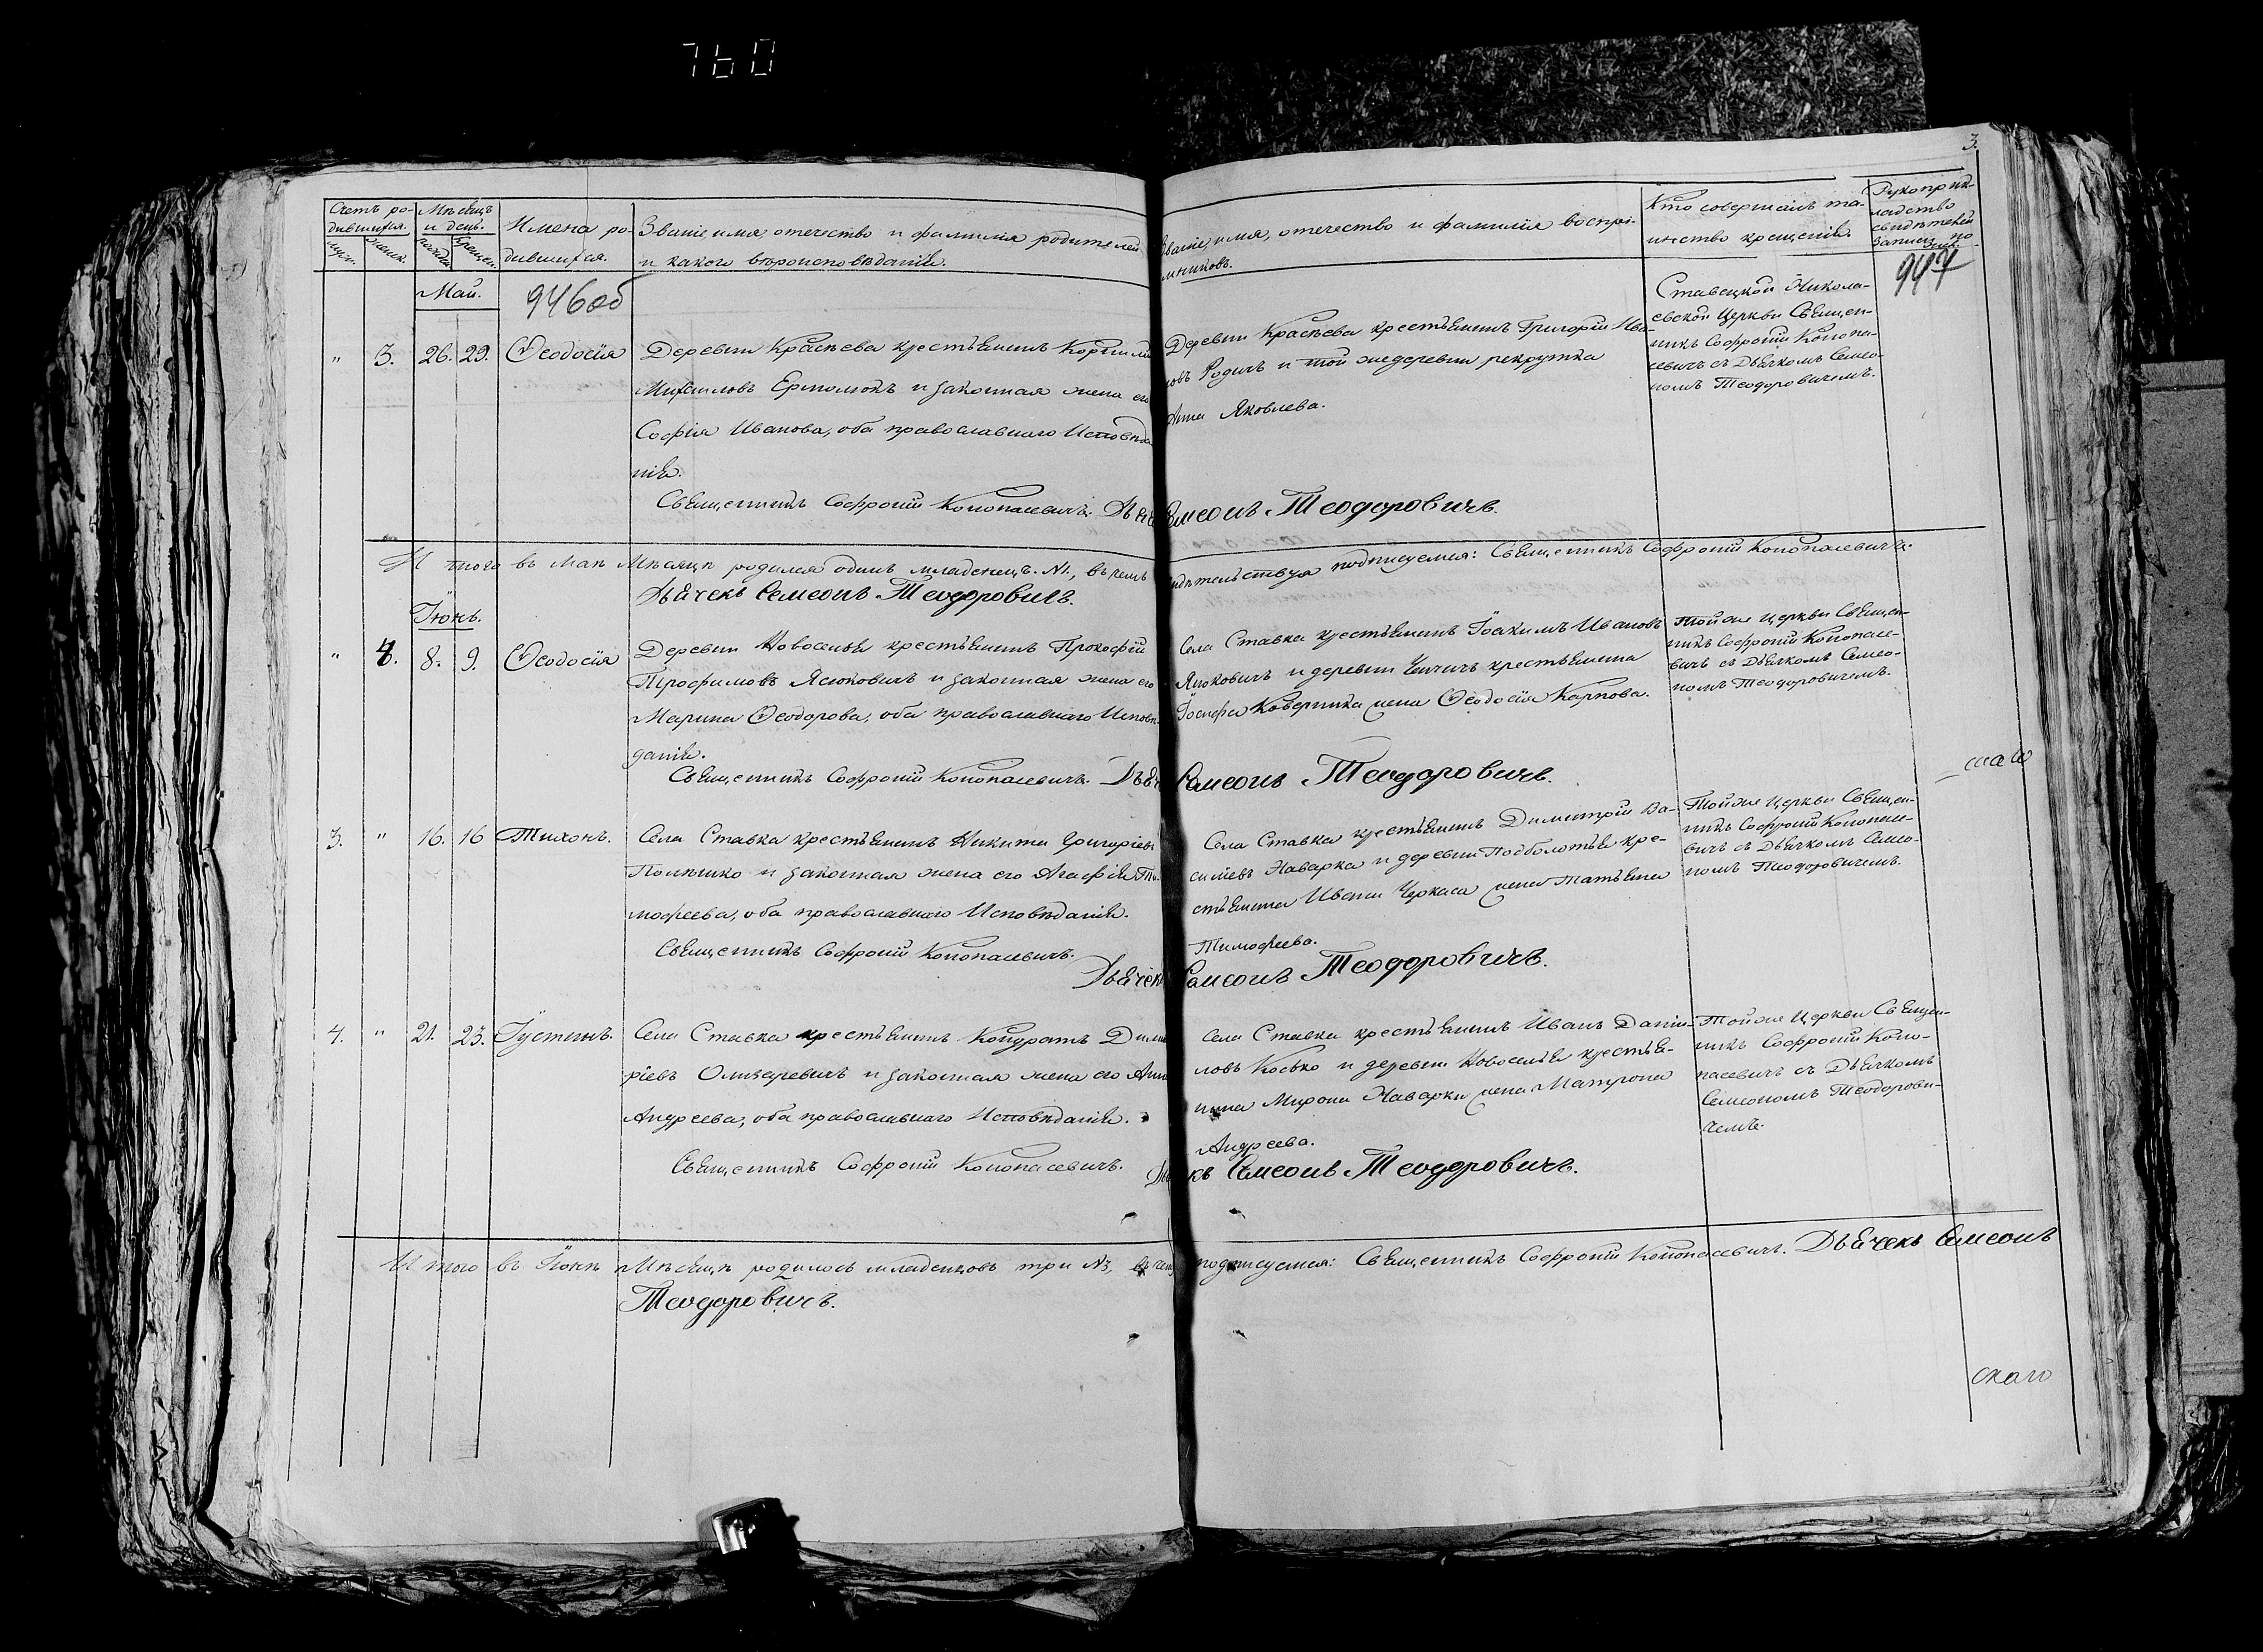 760
3.
Счетъ ро-
дившихся.
муж.
женск.
Мѣсяцъ
и день.
рожден.
крещен.
Имена ро-
дившихся.
Званіе, имя, отечество и фамилія родителей
и какого вѣроисповѣданія.
Званіе, имя, отечество и фамилія воспрі-
емниковъ.
Кто совершалъ та-
инство крещенія.
Рукоприк-
ладство
свидѣтелей
записи по
947
Май.
946об
" 3. 26. 29. Ѳеодосія
Деревни Красѣева крестьянинъ Корнилій
Михаиловъ Ермолюкъ и законная жена его
Софія Иванова, оба православнаго Исповѣда
нія.
Священникъ Софроній Конопасевичъ. Дьяч
Деревни Красѣева крестьянинъ Григорій Ива-
новъ Родичъ и той же деревни рекрутка
Анна Яковлева.
Семеонъ Теодоровичъ.
Ставецкой Никола-
евской Церкви Священ-
никъ Софроній Конопа-
севичъ съ Дьячкомъ Семео-
номъ Теодоровичемъ.
И того въ Маѣ Мѣсяцѣ родился одинъ младенецъ. №1., въ чемъ свидѣтельствуя подписуемся: Священникъ Софроній Конопасевичъ.
Дьячекъ Семеонъ Теодоровичъ.
Іюнь.
" 4. 8. 9. Ѳеодосія
Деревни Новоселья крестьянинъ Прокофій
Трофимовъ Ясюковичъ и законная жена его
Марина Ѳеодорова, оба православнаго Исповѣ
данія.
Священникъ Софроній Конопасевичъ. Дьяч
Села Ставка крестьянинъ Іоакимъ Ивановъ
и деревни крестьянина
Іосифа жена Ѳеодосія Карпова.
Семеонъ Теодоровичъ.
Той же Церкви Священ-
никъ Софроній Конопасе-
вичъ съ Дьячкомъ Семео-
номъ Теодоровичемъ.
3. " 16. 16 Тихонъ.
Села Ставка крестьянинъ Никита Григоріевъ
и законная жена его Агафія Ти-
мофеева, оба православнаго Исповѣданія.
Священникъ Софроній Конопасевичъ.
Дьячекъ
Села Ставка крестьянинъ Димитрій Ва-
силіевъ Наварка и деревни Подболотья кре-
стьянина Ивана Черкаса жена Татьяна
Тимофеева.
Семеонъ Теодоровичъ.
Той же Церкви Священ-
никъ Софроній Конопасе-
вичъ съ Дьячкомъ Семео-
номъ Теодоровичемъ.
4. " 21. 23. Іустинъ.
Села Ставка крестьянинъ Кондратъ Дими
ріевъ Олизаревичъ и законная жена его Анна
Андреева, оба православнаго Исповѣданія.
Священникъ Софроній Конопасевичъ.
Села Ставка крестьянинъ Иванъ Дании-
ловъ Косько и деревни Новоселья крестья-
нина Мирона Наварки жена Матрона
Андреева.
Дьячекъ Семеонъ Теодоровичъ.
Той же Церкви Священ-
никъ Софроній Коно-
пасевичъ съ Дьячкомъ
Семеономъ Теодорови-
чемъ.
И того въ Іюнѣ Мѣсяцѣ родилось младенцовъ три №3, въ чемъ подписуемся: Священникъ Софроній Конопасевичъ. Дьячекъ Семеонъ
Теодоровичъ.
скаго